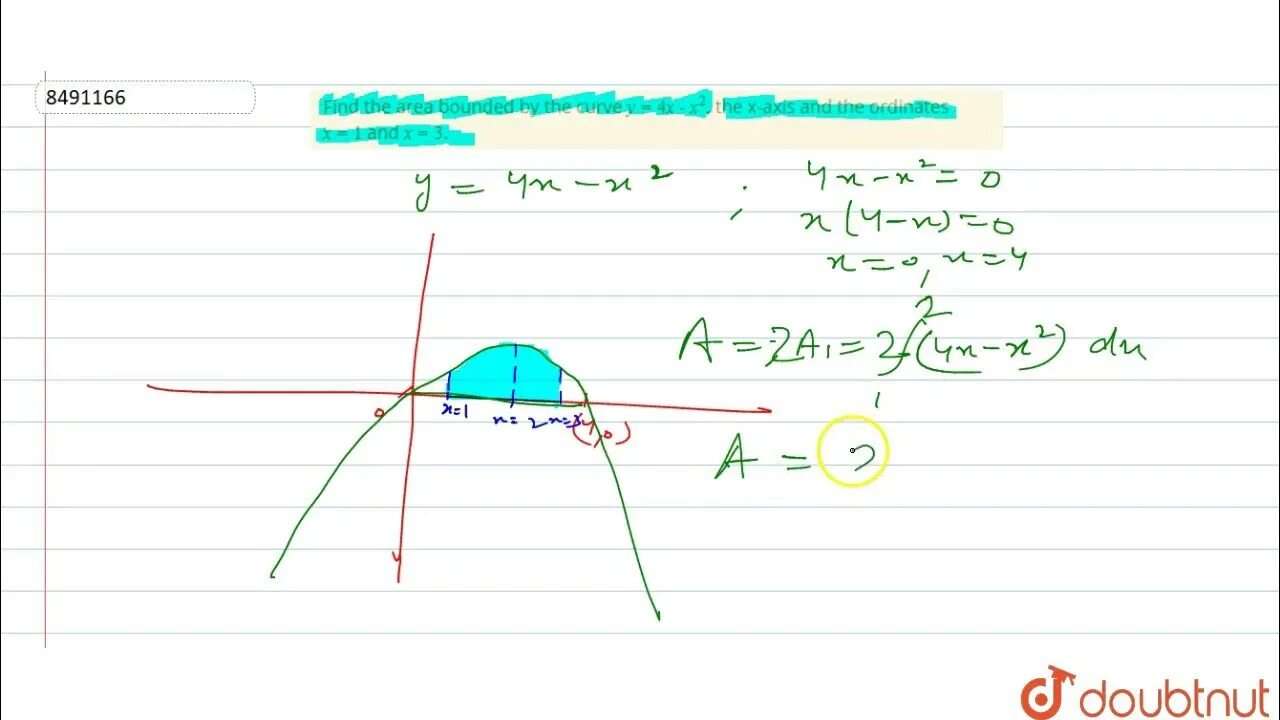 8491166
Find the area bounded by the curve y = 4x - x², the x-axis and the ordinates
x = 1 and x = 3.
y = 4x - x² ; 4x - x² = 0
x(4 - x) = 0
x = 0, x = 4
A = 2A₁ = 2∫₁²(4x - x²) dx
0 x=1 x=2 x=3
(4,0)
A = 2
doubtnut